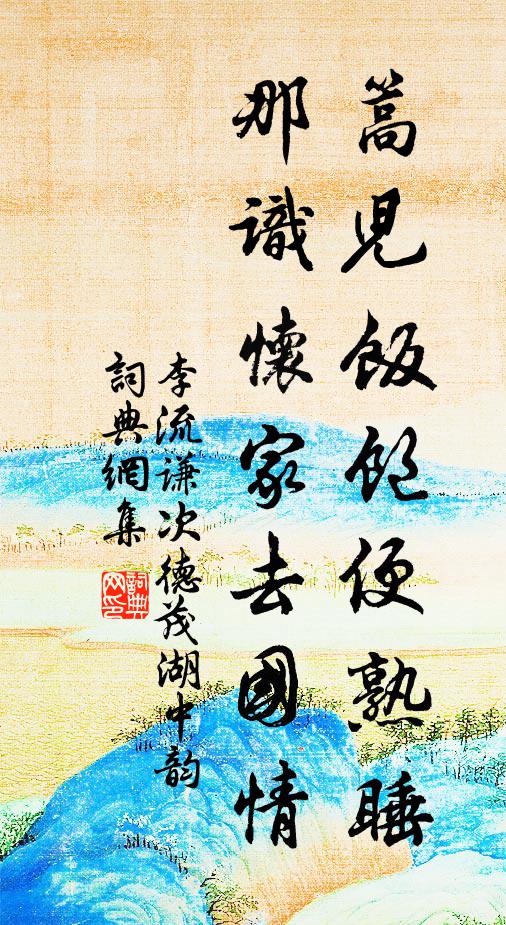 篙兒飯飽便熟睡
那識懷家去國情
李流謙次德茂湖中韻
詞典網集
詞典
网印